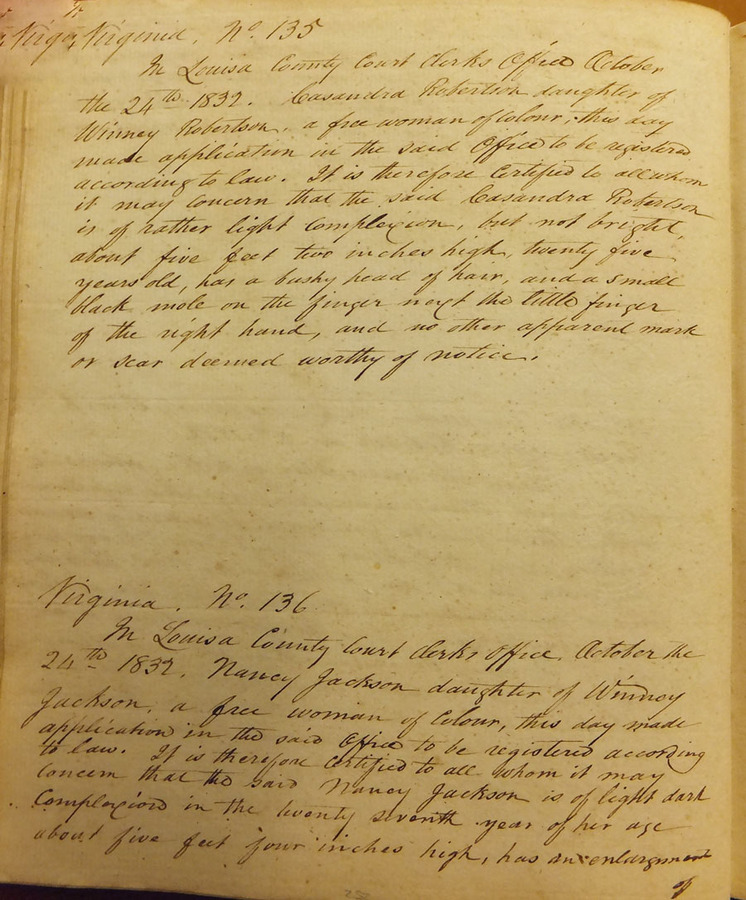 Virginia. No. 135
In Louisa County Court Clerks Office October
the 24th 1832. Casandra Robertson daughter of
Winney Robertson, a free woman of Colour, this day
made application in the said Office to be registered
according to law. It is therefore Certified to all whom
it may concern that the said Casandra Robertson
is of rather light Complexion, but not bright,
about five feet two inches high, twenty five
years old, has a bushy head of hair, and a small
black mole on the finger next the little finger
of the right hand, and no other apparent mark
or scar deemed worthy of notice.
Virginia. No. 136
In Louisa County Court Clerks Office, October the
24th 1832. Nancy Jackson daughter of Winney
Jackson, a free woman of Colour, this day made
application in the said Office to be registered according
to law. It is therefore Certified to all whom it may
Concern that the said Nancy Jackson is of light dark
Complexion in the twenty seventh year of her age
about five feet four inches high, has an enlargment
of